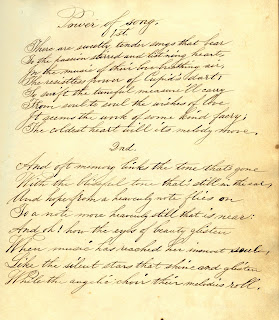 Power of song.
1st.
There are sweetly tender songs that bear
To the passion stirred and listening heart,
In the music of their love-breathing air,
The resistless power of Cupid's dart;
So swift the tuneful measure 'll carry
From soul to soul the wishes of love
It seems the work of some kind faery;
The coldest heart will its melody move.
2nd.
And oft memory links the tone that's gone
With the blissful tone that's still in the ear,
And hope from a heavenly note flies on
To a note more heavenly still that is near:
And oh! how the eyes of beauty glisten
When music has reached her inmost soul,
Like the silent stars that shine and glisten
While the angelic choir their melodies roll.